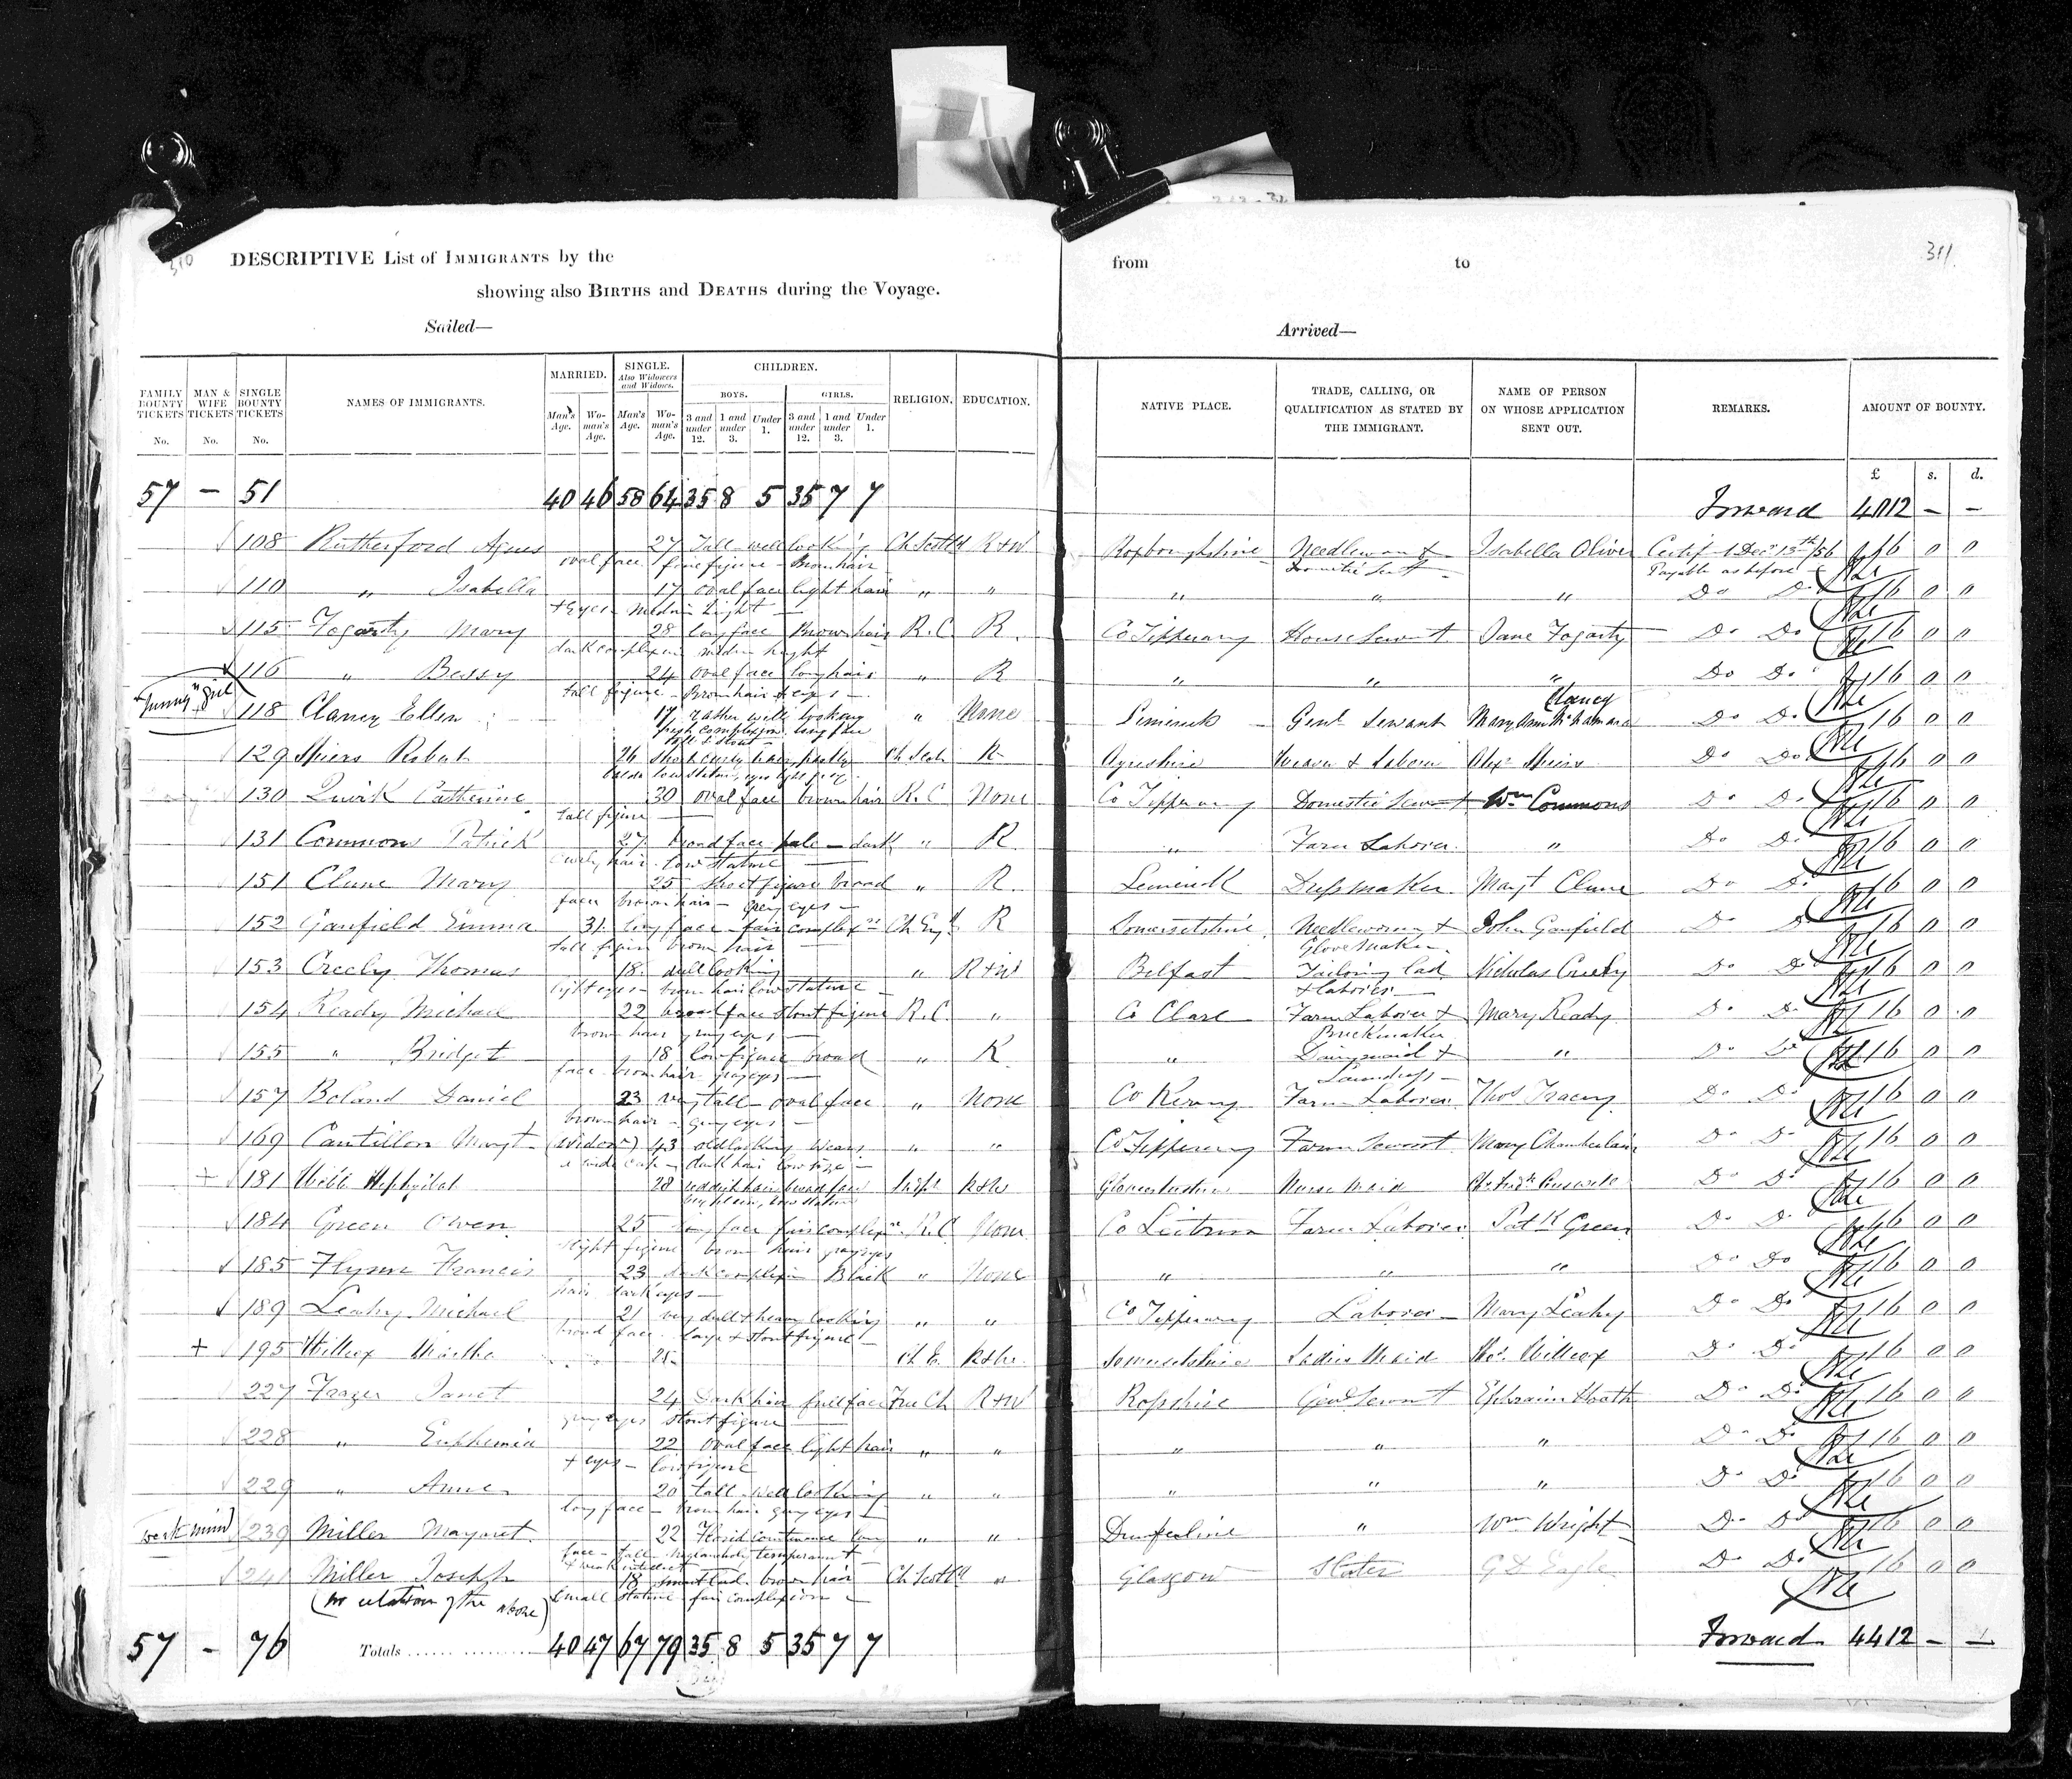 310
DESCRIPTIVE List of IMMIGRANTS by the
showing also BIRTHS and DEATHS during the Voyage.
Sailed—
from to
311.
Arrived—
FAMILY BOUNTY TICKETS No. MAN & WIFE TICKETS No. SINGLE BOUNTY TICKETS No. NAMES OF IMMIGRANTS. MARRIED. Man's Age. Wo-man's Age. SINGLE. Also Widowers and Widows. Man's Age. Wo-man's Age. CHILDREN. BOYS. 3 and under 12. 1 and under 3. Under 1. GIRLS. 3 and under 12. 1 and under 3. Under 1. RELIGION. EDUCATION. NATIVE PLACE. TRADE, CALLING, OR QUALIFICATION AS STATED BY THE IMMIGRANT. NAME OF PERSON ON WHOSE APPLICATION SENT OUT. REMARKS. AMOUNT OF BOUNTY.
£ s. d.
57 – 51 40 46 58 64 35 8 5 35 7 7 Forward 4012 – –
108 Rutherford Agnes 27 Tall well looking Ch Scotld R+W Roxboroughshire Needlewom & Isabella Oliver Certif 1 Decr 13th/56 16 0 0
oval face fine figure – Brown hair Domestic Servt Payable as before
110 " Isabella 17 oval face light hair " " " " " Do Do 16 0 0
+ Eyes – medm hight –
115 Fogarty Mary 28 long face Brown hair R.C. R. Co Tipperary House Servt Jane Fogarty Do Do 16 0 0
dark complexn medm hight
116 " Bessy 24 oval face long hair " R " " " Do Do 16 0 0
tall figure – Brown hair & eyes –
"funny" girl
Clancy
118 Clancy Ellen 17 rather well looking " None Limerick Genl Servant Mary Ann McNamara Do Do 16 0 0
fresh complexion long face
tall & stout –
129 Spiers Robert 26 short curly hair Ch Scot R Ayrshire Weaver & Laborer Alexr Spiers Do Do 16 0 0
low stature, eyes light grey
130 Quirk Catherine 30 oval face brown hair R.C None Co Tipperary Domestic Servt Wm Commons Do Do 16 0 0
tall figure
131 Commons Patrick 27 broad face pale – dark " R. " Farm Laborer. " Do Do 16 0 0
curly hair. low stature
151 Clune Mary 25 short figure broad " R. Limerick Dressmaker Margt Clune Do Do 16 0 0
face brown hair – grey eyes –
152 Ganfield Emma 31. long face – fair complexn Ch Engd R Somersetshire. Needlewoman & John Ganfield Do Do 16 0 0
tall figure brown hair Glove Maker –
153 Creely Thomas 18. dull looking " R+W Belfast Tailoring lad Nicholas Creely Do Do 16 0 0
light eyes – brown hair low stature – & laborer –
154 Ready Michael 22 broad face stout figure R.C. " Co Clare Farm Laborer & Mary Ready Do Do 16 0 0
brown hair grey eyes – Brickmaker
155 " Bridget 18 low figure broad " R. " Dairymaid & " Do Do 16 0 0
face brown hair grey eyes – Laundress –
157 Boland Daniel 23 very tall – oval face " None Co Kerry Farm Laborer Thos Tracey Do Do 16 0 0
brown hair – grey eyes –
169 Cantillon Margt (Widow) 43 old looking wears " " Co Tipperary Farm Servant Mary Chamberlain Do Do 16 0 0
a cap – dark hair low size –
+ 181 Webb Hephzibah 28 reddish hair broad face Bapt R+W Gloucestershire Nurse Maid Do Do 16 0 0
low stature
184 Green Owen 25 long face fair complexn R.C None Co Leitrim Farm Laborer. Patk Green Do Do 16 0 0
slight figure brown hair grey eyes
185 Flynn Francis 23 dark complexn Black " None " " " Do Do 16 0 0
hair dark eyes –
189 Leahy Michael 21 very dull & heavy looking " " Co Tipperary Laborer – Mary Leahy Do Do 16 0 0
broad face. large & stout figure –
+ 195 Willcox Martha 25 Ch E. R+W. Somersetshire Ladies Maid Willcox Do Do 16 0 0
227 Frazer Janet 24 Dark hair full face Free Ch R+W Rossshire Genl Servant Ephraim Heath Do Do 16 0 0
grey eyes stout figure
228 " Euphemia 22 oval face light hair " " " " " Do Do 16 0 0
+ eyes – low figure
229 " Anne 20 tall well looking " " " " " Do Do 16 0 0
long face – brown hair grey eyes –
weak mind 239 Miller Margaret 22 Florid countenance long " " Dumferline " Wm Wright Do Do 16 0 0
face – tall melancholy temperamt
+ weak intellect
241 Miller Joseph 18 smart lad. brown hair Ch Scotld " Glasgow Slater G D Eagle Do Do 16 0 0
(no relation of the above) small stature fair complexion –
57 – 76 Totals 40 47 67 79 35 8 5 35 7 7 Forward 4412 – –